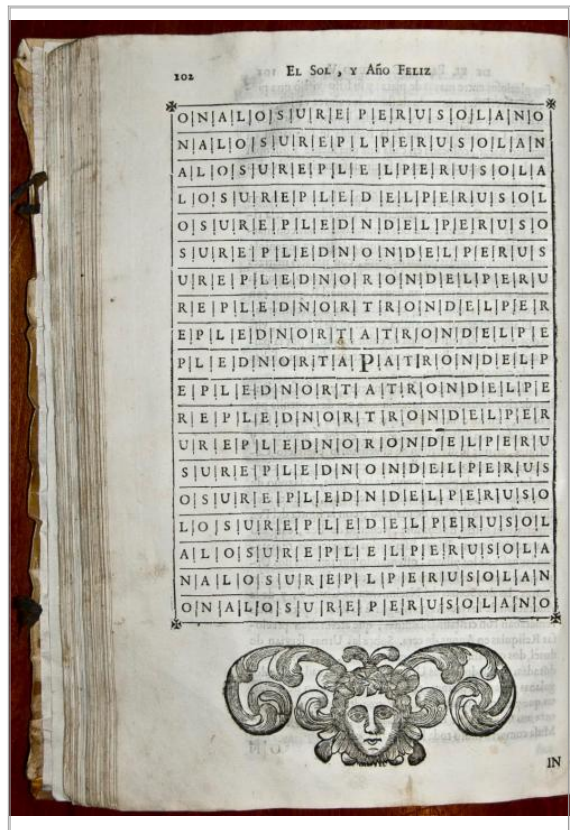 102 EL SOL, Y AÑO FELIZ
O N A L O S U R E P E R U S O L A N O
N A L O S U R E P L P E R U S O L A N
A L O S U R E P L E L P E R U S O L A
L O S U R E P L E D E L P E R U S O L
O S U R E P L E D N D E L P E R U S O
S U R E P L E D N O N D E L P E R U S
U R E P L E D N O R O N D E L P E R U
R E P L E D N O R T R O N D E L P E R
E P L E D N O R T A T R O N D E L P E
P L E D N O R T A P A T R O N D E L P
E P L E D N O R T A T R O N D E L P E
R E P L E D N O R T R O N D E L P E R
U R E P L E D N O R O N D E L P E R U
S U R E P L E D N O N D E L P E R U S
O S U R E P L E D N D E L P E R U S O
L O S U R E P L E D E L P E R U S O L
A L O S U R E P L E L P E R U S O L A
N A L O S U R E P L P E R U S O L A N
O N A L O S U R E P E R U S O L A N O
IN